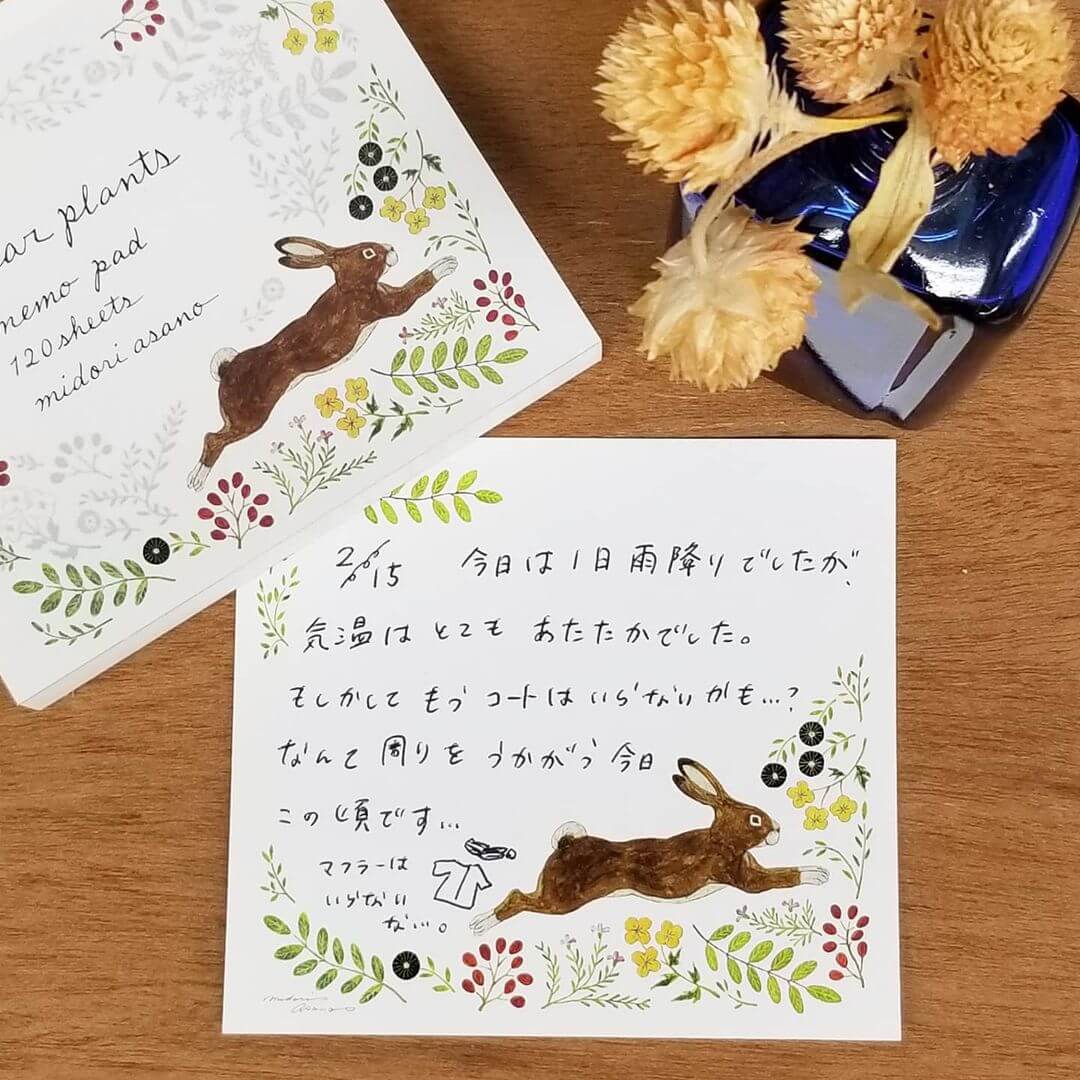 ar plants
memo pad
120 sheets
midori asano
2/15 今日は1日雨降りでしたが、
気温はとても あたたかでした。
もしかして もう コートは いらないかも…?
なんて 周りを うかがう 今日
この頃です…
マフラーは
いらない
ない。
midori
asano